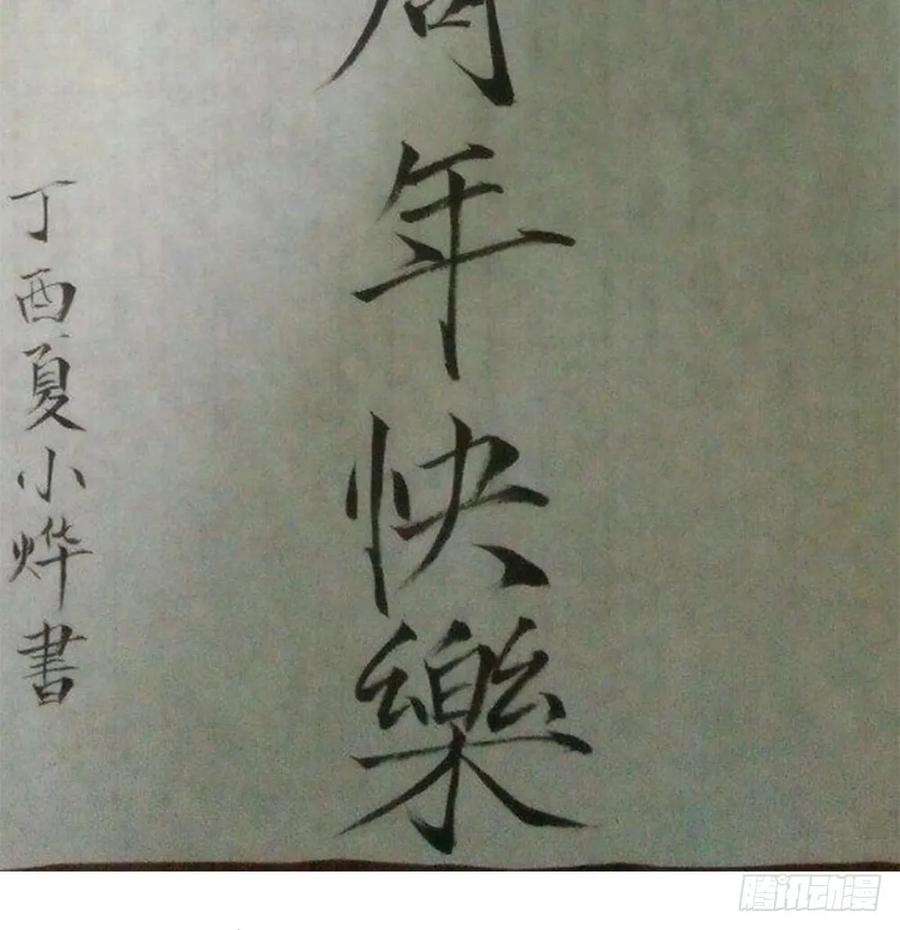 周年快樂
丁酉夏小烨書
腾讯动漫